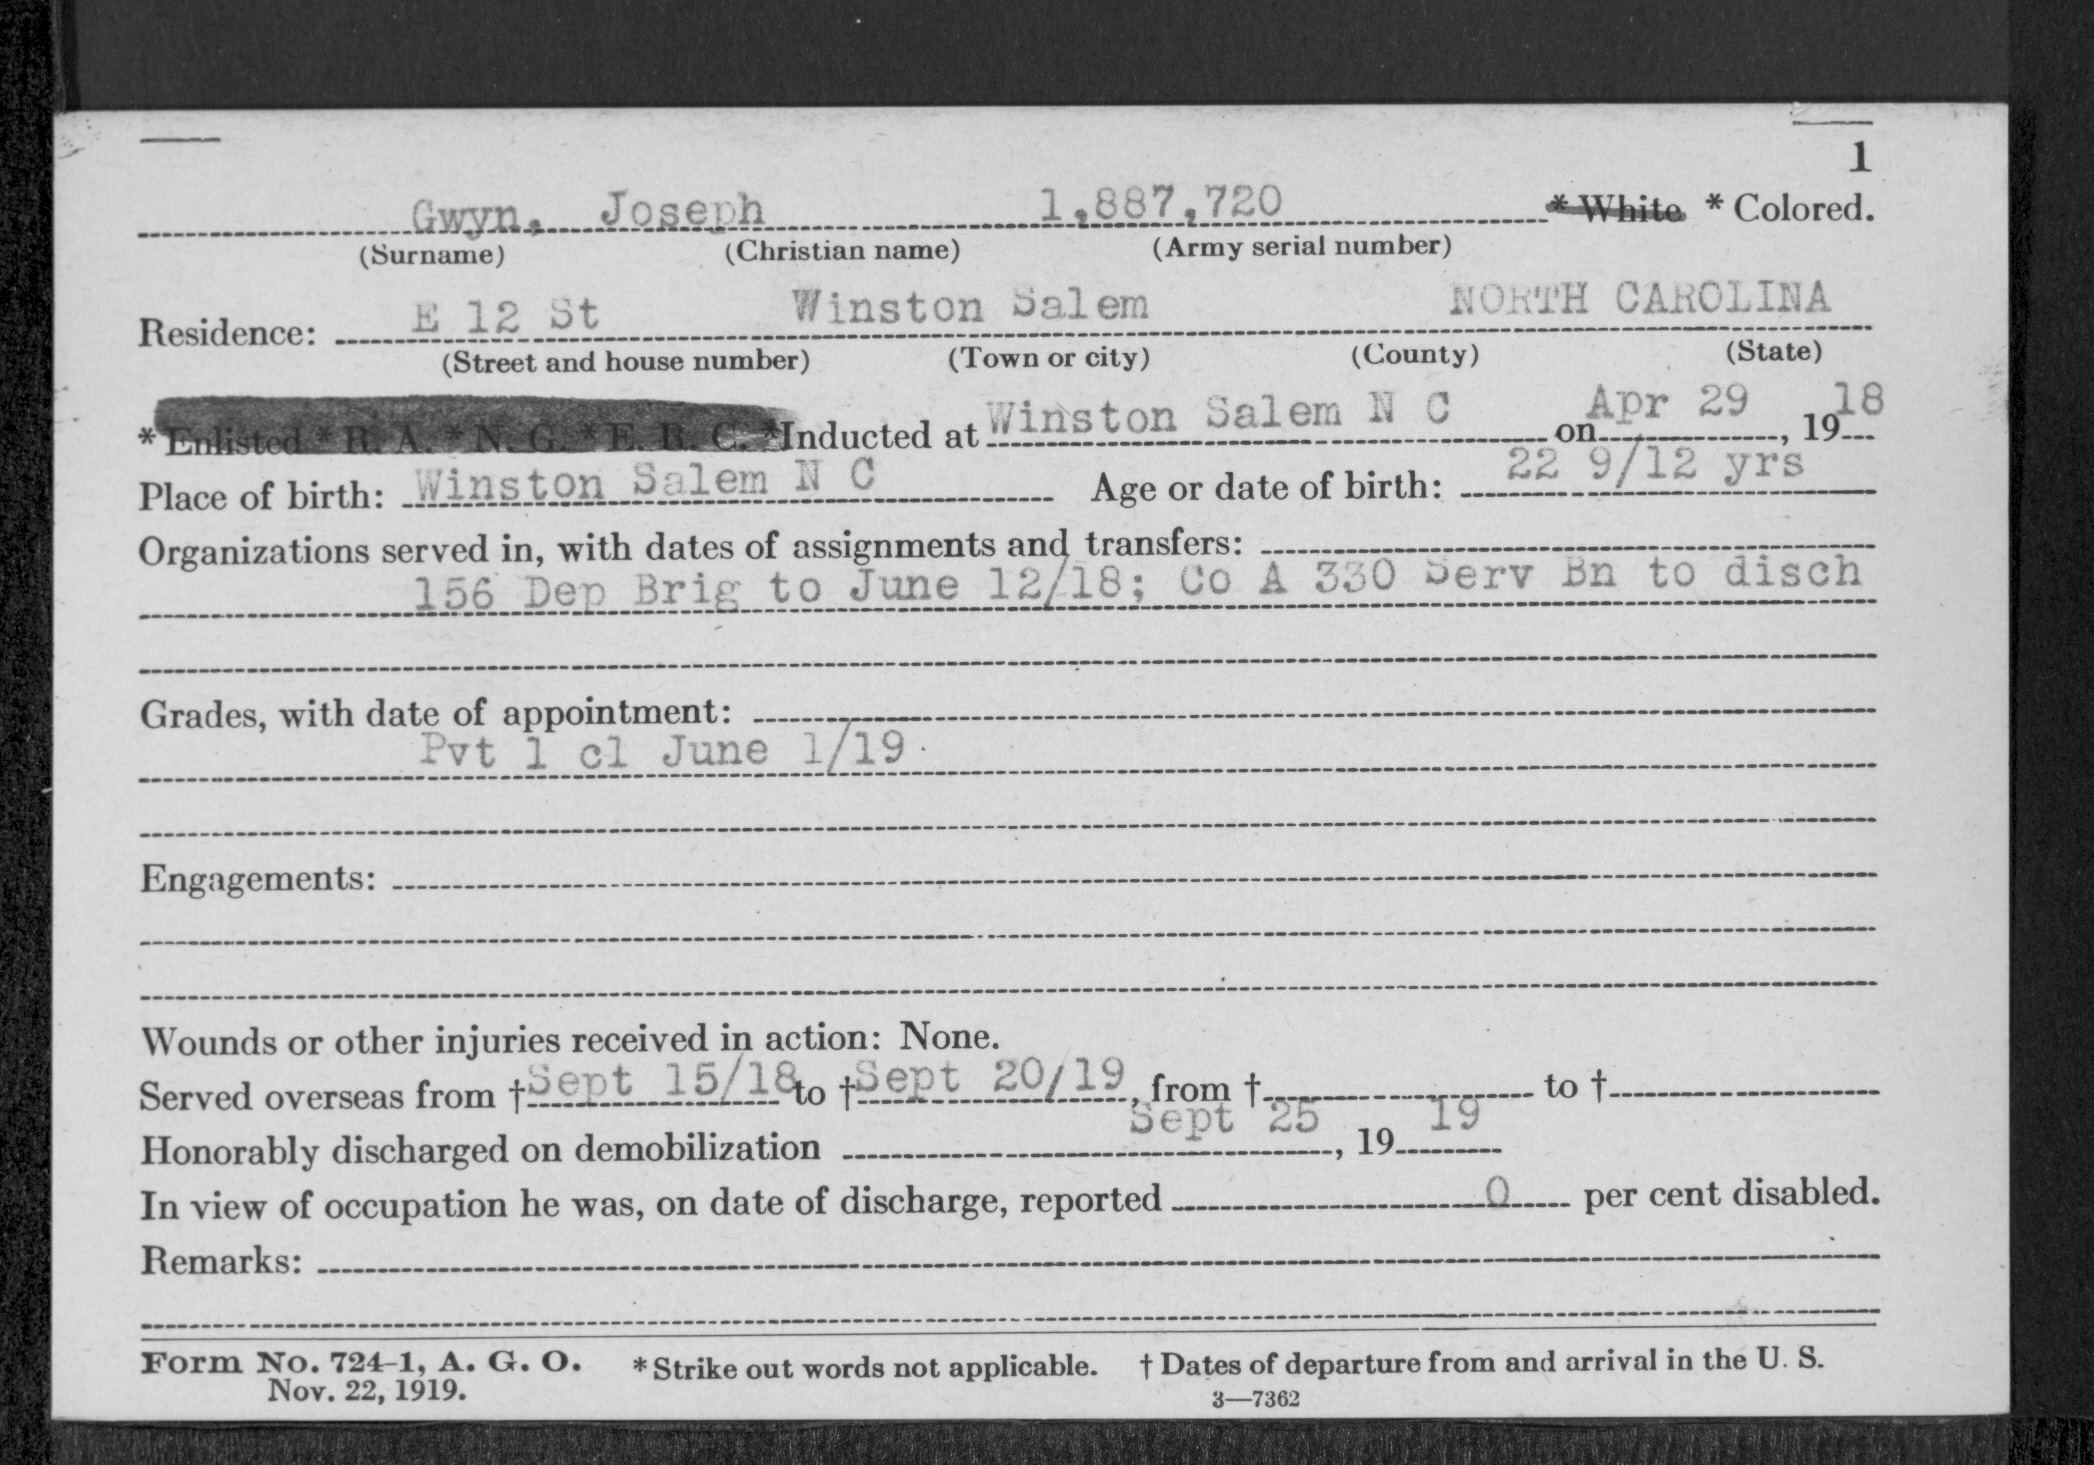 1
Gwyn, Joseph 1,887,720 * White * Colored.
(Surname) (Christian name) (Army serial number)
Residence: E 12 St Winston Salem NORTH CAROLINA
(Street and house number) (Town or city) (County) (State)
* Enlisted * R. A. * N. G. * E. R. C. *Inducted at Winston Salem N C on Apr 29, 1918
Place of birth: Winston Salem N C Age or date of birth: 22 9/12 yrs
Organizations served in, with dates of assignments and transfers:
156 Dep Brig to June 12/18; Co A 330 Serv Bn to disch
Grades, with date of appointment:
Pvt 1 cl June 1/19
Engagements:
Wounds or other injuries received in action: None.
Served overseas from † Sept 15/18 to † Sept 20/19, from † to †
Honorably discharged on demobilization Sept 25, 1919
In view of occupation he was, on date of discharge, reported 0 per cent disabled.
Remarks:
Form No. 724-1, A. G. O. * Strike out words not applicable. † Dates of departure from and arrival in the U. S.
Nov. 22, 1919. 3—7362